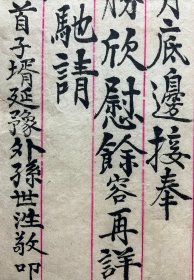 月底邊接奉
勝欣慰餘容再詳
馳請
首子壻延豫外孫世泩敬叩